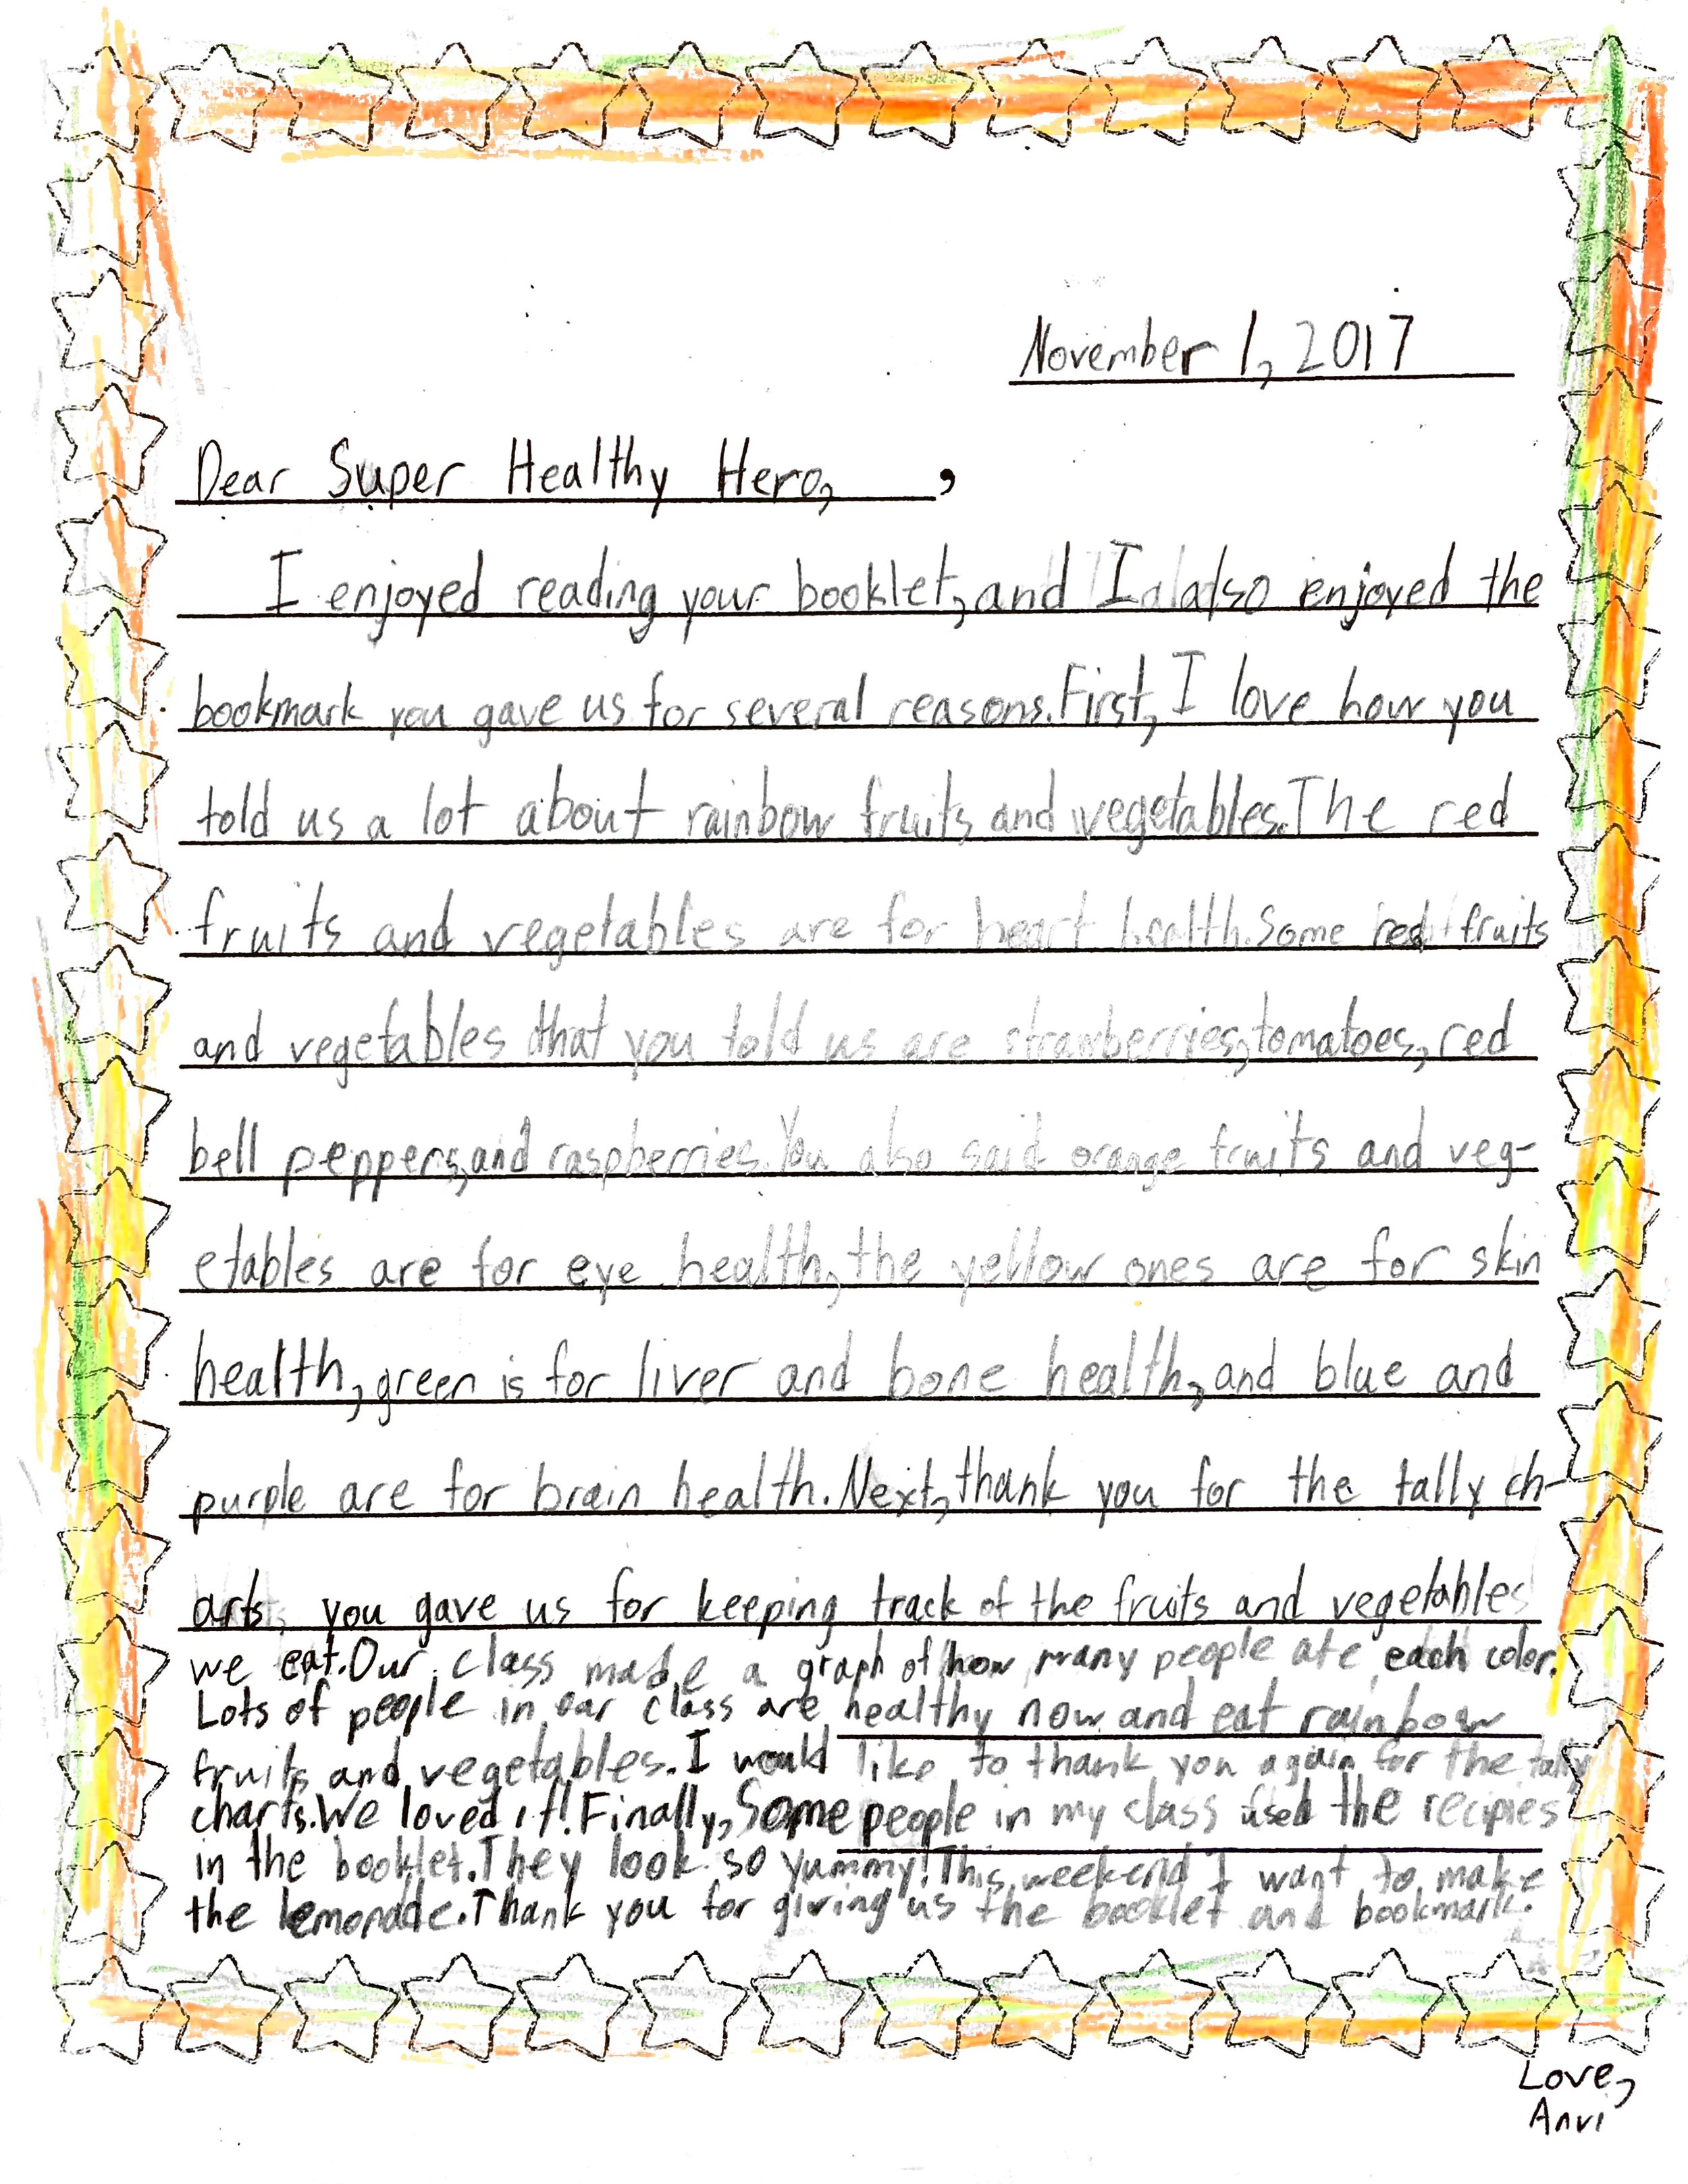 November 1, 2017
Dear Super Healthy Hero, ,
I enjoyed reading your booklet, and I also enjoyed the
bookmark you gave us for several reasons. First, I love how you
told us a lot about rainbow fruits and vegetables. The red
fruits and vegetables are for heart health. Some red fruits
and vegetables that you told us are strawberries, tomatoes, red
bell peppers, and raspberries. You also said orange fruits and veg-
etables are for eye health, the yellow ones are for skin
health, green is for liver and bone health, and blue and
purple are for brain health. Next, thank you for the tally ch-
arts, you gave us for keeping track of the fruits and vegetables
we eat. Our class made a graph of how many people ate each color.
Lots of people in our class are healthy now and eat rainbow
fruits and vegetables. I would like to thank you again for the tally
charts. We loved it! Finally, Some people in my class used the recipies
in the booklet. They look so yummy! This weekend I want to make
the lemonade. Thank you for giving us the booklet and bookmark.
Love,
Anvi